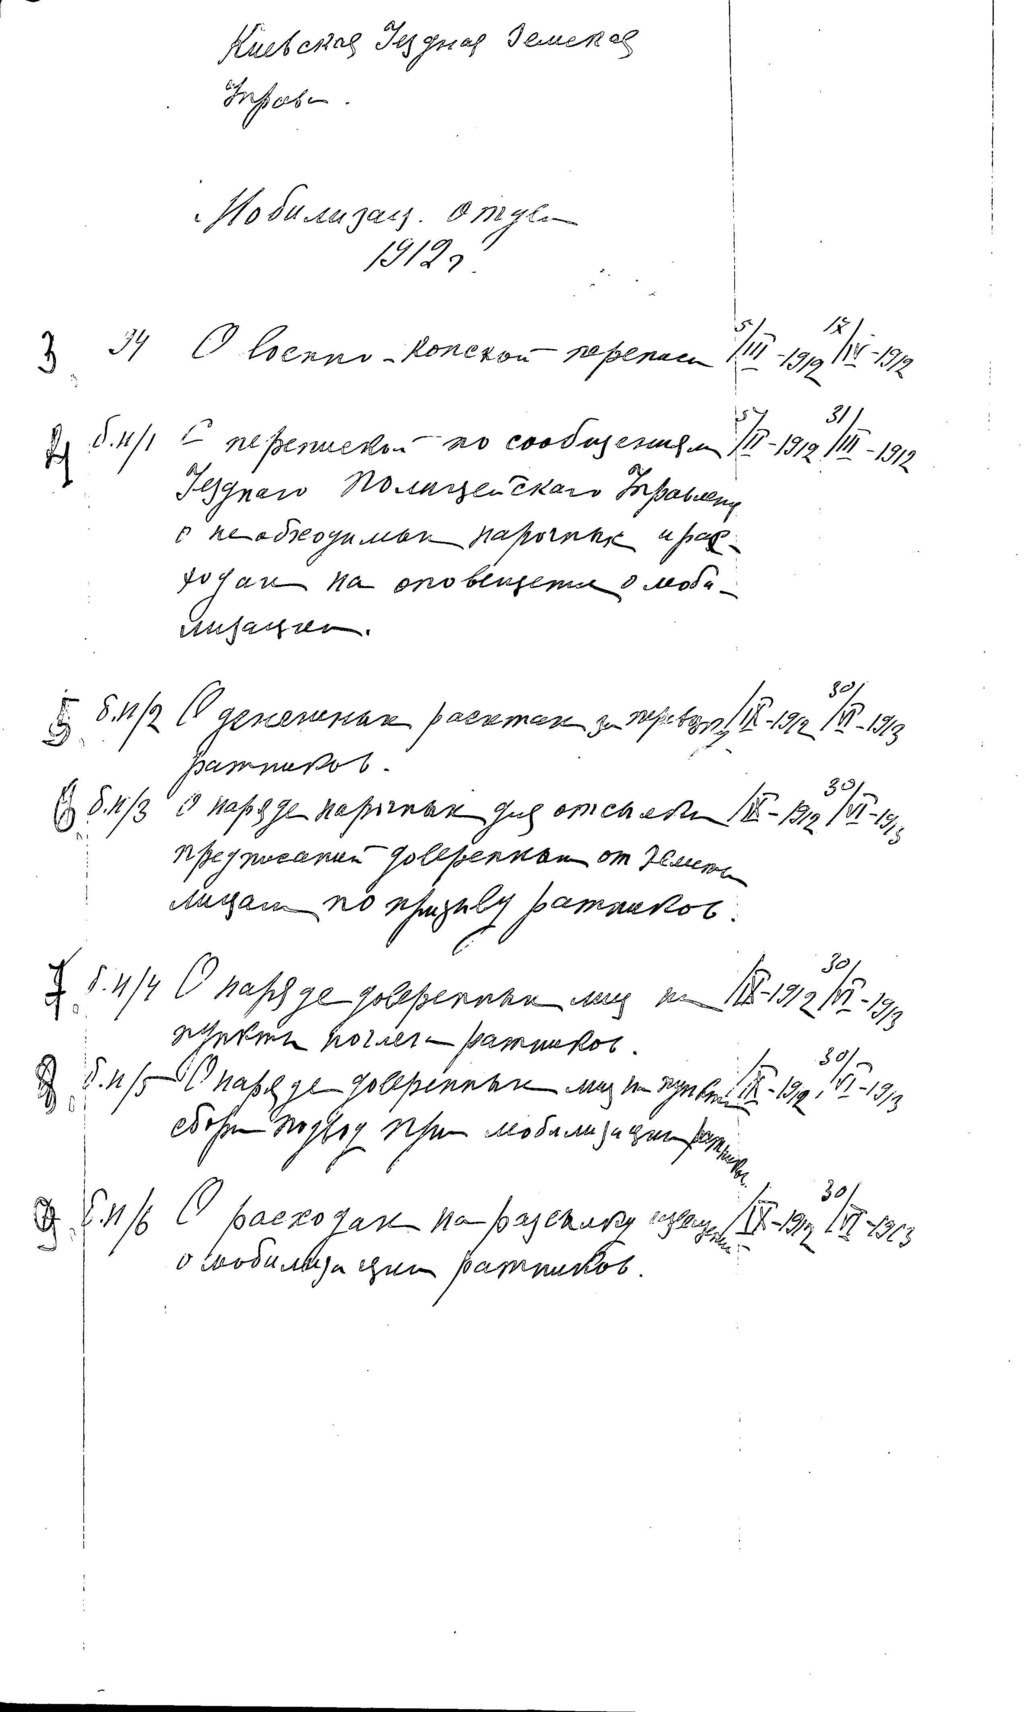 Киевская Уездная Земская
Управа.
Мобилизац. отдел
1912 г.
3 34 О военно-конской переписи 5/III-1912 17/IV-1912
4 б.н/1 С перепиской по сообщениям 5/II-1912 31/III-1912
Уездного Полицейского Управления
о необходимых нарочных и рас-
ходах на оповещение о моби-
лизации.
5 б.н/2 О денежных расчетах за перевозку /IX-1912 30/VI-1913
ратников.
6 б.н/3 О наряде нарочных для отсылки /IX-1912 30/VI-1913
предписаний доверенным от Земства
лицам по призыву ратников.
7 б.н/4 О наряде доверенных лиц на /IX-1912 30/VI-1913
пункты ночлега ратников.
8 б.н/5 О наряде доверенных лиц на пункты /IX-1912 30/VI-1913
сбора подвод при мобилизации ратников.
9 б.н/6 О расходах на рассылку извещений /IX-1912 30/VI-1913
о мобилизации ратников.